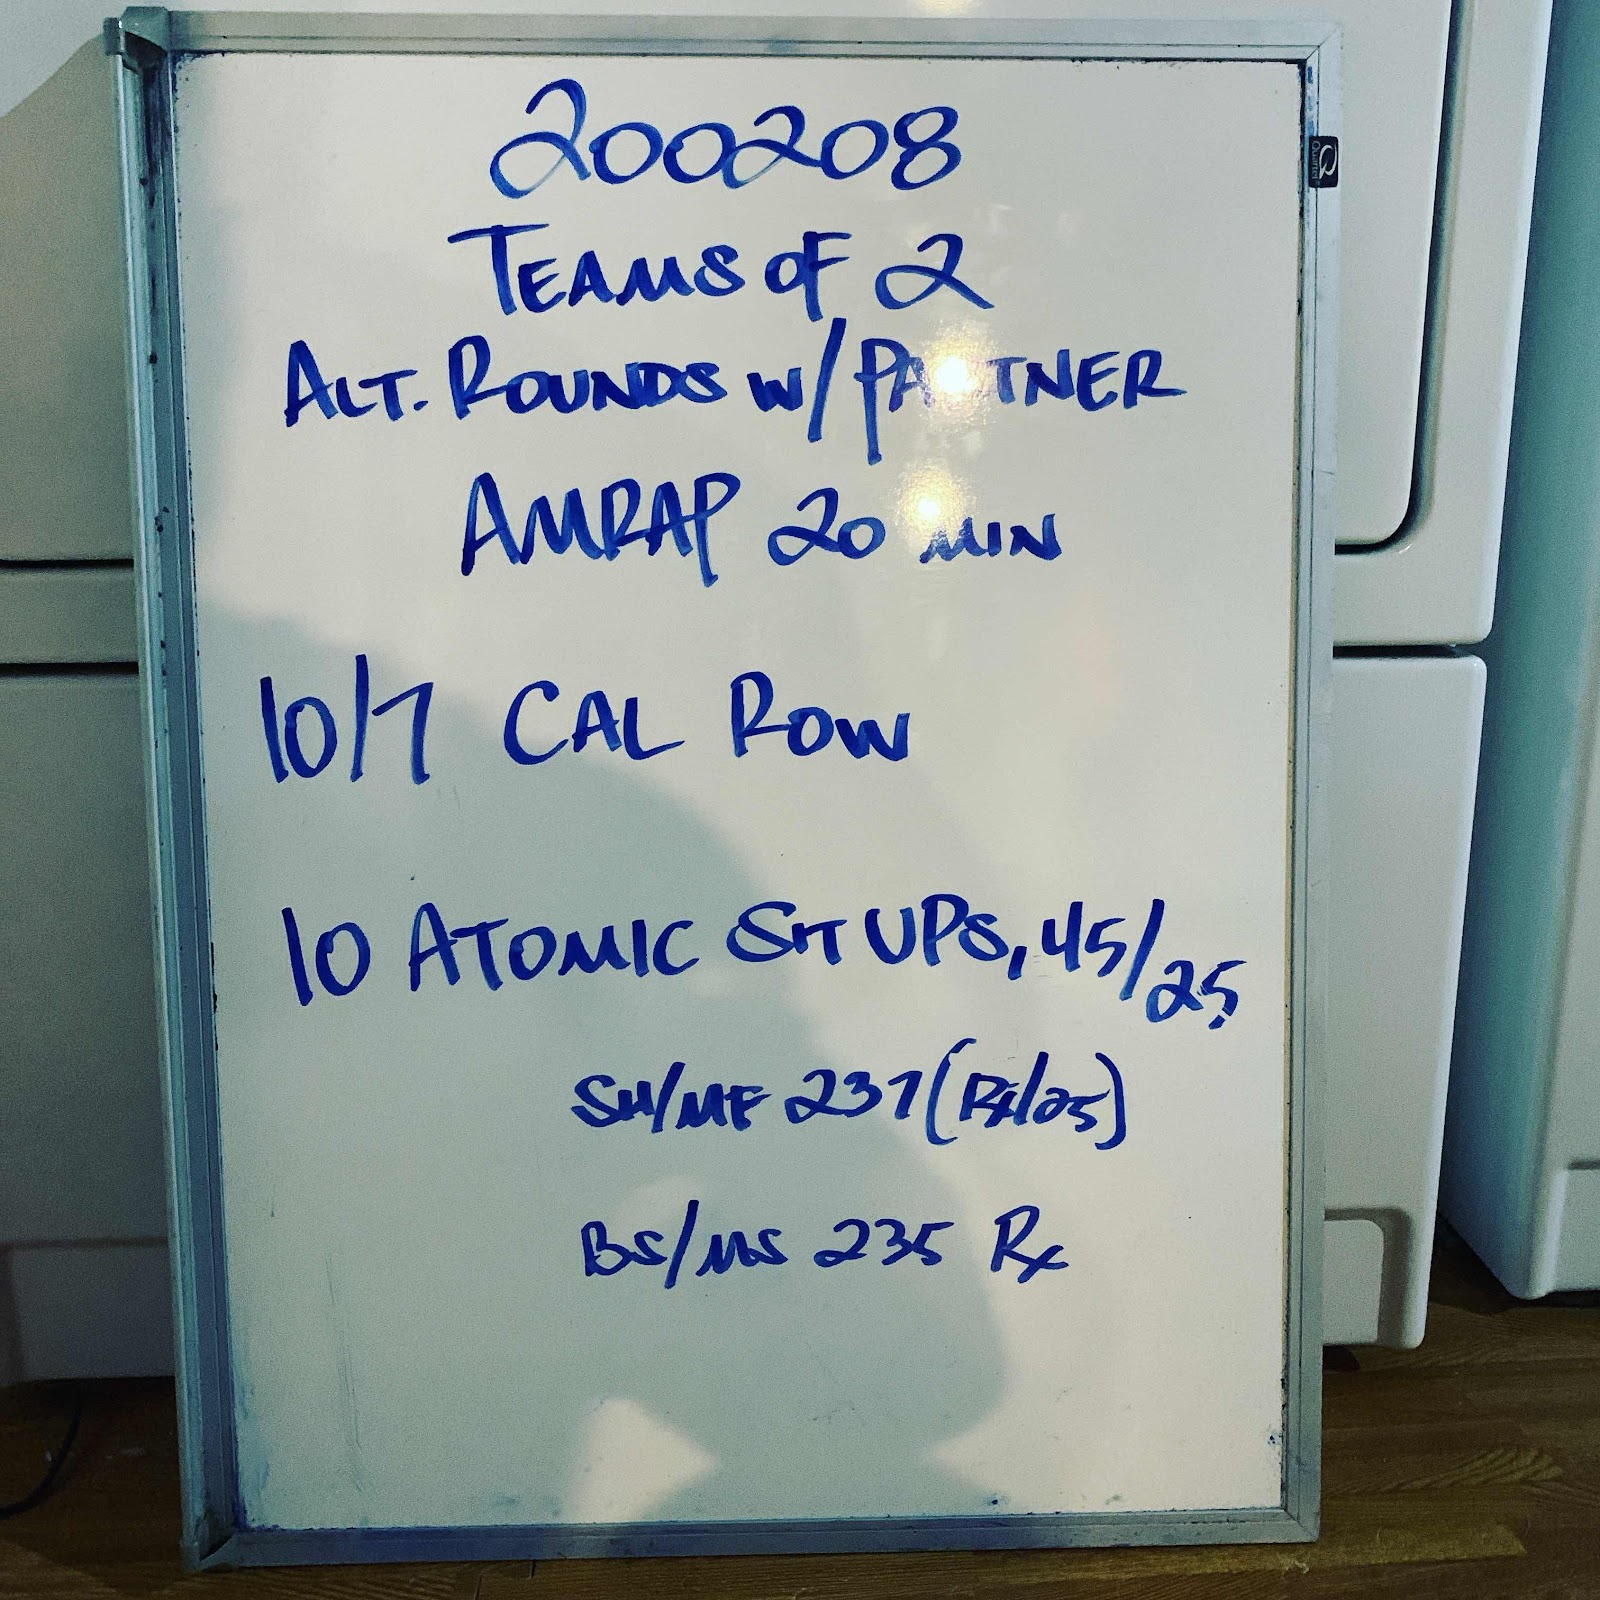 200208
TEAMS OF 2
ALT. ROUNDS W/ PARTNER
AMRAP 20 MIN
10/7 CAL ROW
10 ATOMIC SIT UPS, 45/25
SH/MF 237 (Rx/25)
BS/MS 235 Rx
Quartet